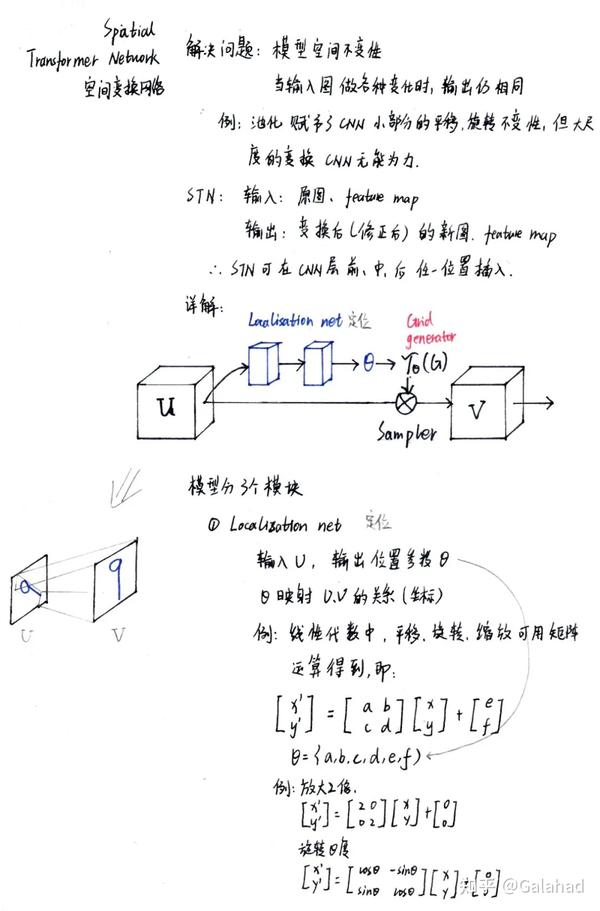 Spatial
Transformer Network
空间变换网络
解决问题：模型空间不变性
当输入图做各种变化时，输出仍相同
例：池化赋予了CNN小部分的平移,旋转不变性，但大尺
度的变换CNN无能为力.
STN： 输入：原图、feature map
输出：变换后(修正后)的新图. feature map
∴ STN可在CNN层前、中、后任一位置插入.
详解：
Localisation net 定位
Grid
generator
θ
Tθ(G)
U
V
Sampler
模型分3个模块
① Localization net 定位
输入U，输出位置参数θ
θ映射U.V的关系(坐标)
例：线性代数中，平移、旋转、缩放可用矩阵
运算得到,即：
[x' y'] = [a b c d][x y] + [e f]
θ={a,b,c,d,e,f}
例：放大2倍.
[x' y'] = [2 0 0 2][x y] + [0 0]
旋转θ度
[x' y'] = [cosθ -sinθ sinθ cosθ][x y] + [0 0]
9
9
U
V
知乎 @Galahad